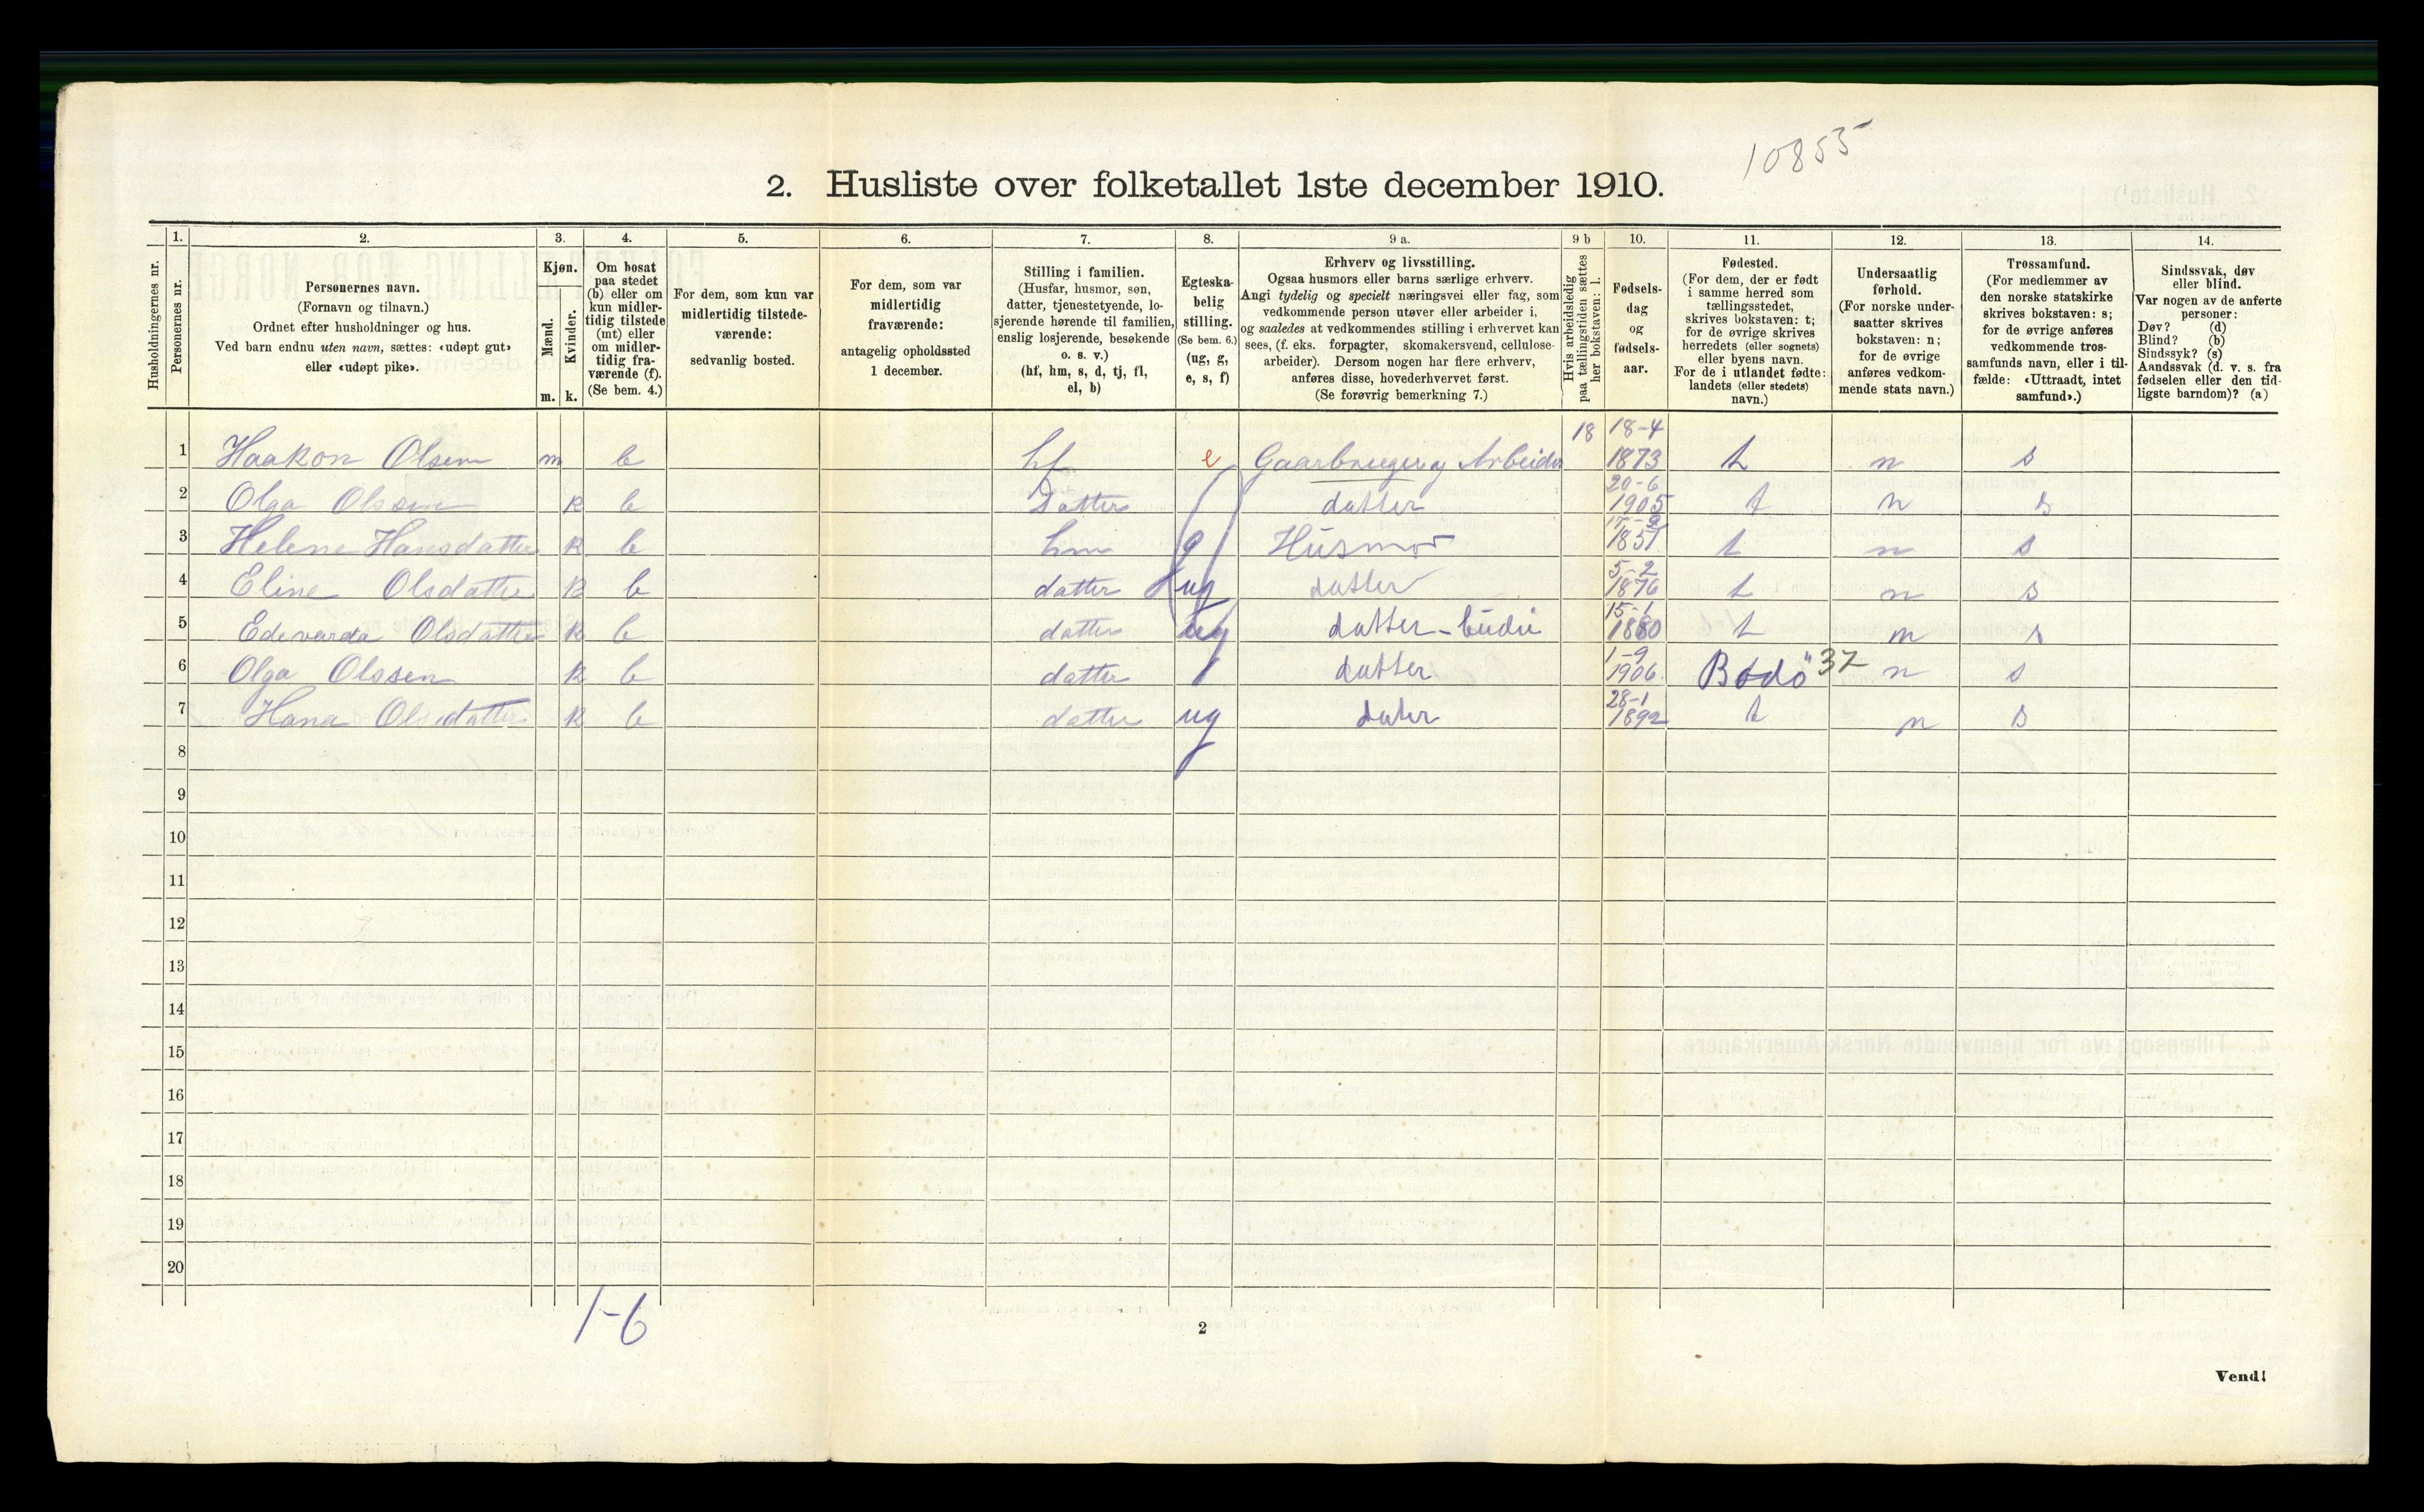 10855
2. Husliste over folketallet 1ste december 1910.
Husholdningernes nr.
1.
Personernes nr.
2.
Personernes navn.
(Fornavn og tilnavn.)
Ordnet efter husholdninger og hus.
Ved barn endnu uten navn, sættes: «udøpt gut»
eller «udøpt pike».
3.
Kjøn.
Mænd.
Kvinder.
m. k.
4.
Om bosat
paa stedet
(b) eller om
kun midler-
tidig tilstede
(mt) eller
om midler-
tidig fra-
værende (f).
(Se bem. 4.)
5.
For dem, som kun var
midlertidig tilstede-
værende:
sedvanlig bosted.
6.
For dem, som var
midlertidig
fraværende:
antagelig opholdssted
1 december.
7.
Stilling i familien.
(Husfar, husmor, søn,
datter, tjenestetyende, lo-
sjerende hørende til familien,
enslig losjerende, besøkende
o. s. v.)
(hf, hm, s, d, tj, fl,
el, b)
8.
Egteska-
belig
stilling.
(Se bem. 6.)
(ug, g,
e, s, f)
9 a.
Erhverv og livsstilling.
Ogsaa husmors eller barns særlige erhverv.
Angi tydelig og specielt næringsvei eller fag, som
vedkommende person utøver eller arbeider i,
og saaledes at vedkommendes stilling i erhvervet kan
sees, (f. eks. forpagter, skomakersvend, cellulose-
arbeider). Dersom nogen har flere erhverv,
anføres disse, hovederhvervet først.
(Se forøvrig bemerkning 7.)
9 b
Hvis arbeidsledig
paa tællingstiden sættes
her bokstaven: l.
10.
Fødsels-
dag
og
fødsels-
aar.
11.
Fødested.
(For dem, der er født
i samme herred som
tællingsstedet,
skrives bokstaven: t;
for de øvrige skrives
herredets (eller sognets)
eller byens navn.
For de i utlandet fødte:
landets (eller stedets)
navn.)
12.
Undersaatlig
forhold.
(For norske under-
saatter skrives
bokstaven: n;
for de øvrige
anføres vedkom-
mende stats navn.)
13.
Trossamfund.
(For medlemmer av
den norske statskirke
skrives bokstaven: s;
for de øvrige anføres
vedkommende tros-
samfunds navn, eller i til-
fælde: «Uttraadt, intet
samfund».)
14.
Sindssvak, døv
eller blind.
Var nogen av de anførte
personer:
Døv? (d)
Blind? (b)
Sindssyk? (s)
Aandssvak (d. v. s. fra
fødselen eller den tid-
ligste barndom)? (a)
1 Haakon Olsen m b hf e Gaarbruger og Arbeider 18 18-4 1873 t n s
2 Olga Olssen k b Datter datter 20-6 1905 t n s
3 Helene Hansdatter k b hm g Husmor 1851 t n s
4 Eline Olsdatter k b datter ug datter 5-2 1876 t n s
5 Edevarda Olsdatter k b datter ug datter - budei 15-1 1880 t n s
6 Olga Olssen k b datter datter 1-9 1906 Bodø 37 n s
7 Hana Olsdatter k b datter ug dater 28-1 1892 t n s
8
9
10
11
12
13
14
15
16
17
18
19
20
1-6
2
Vend!